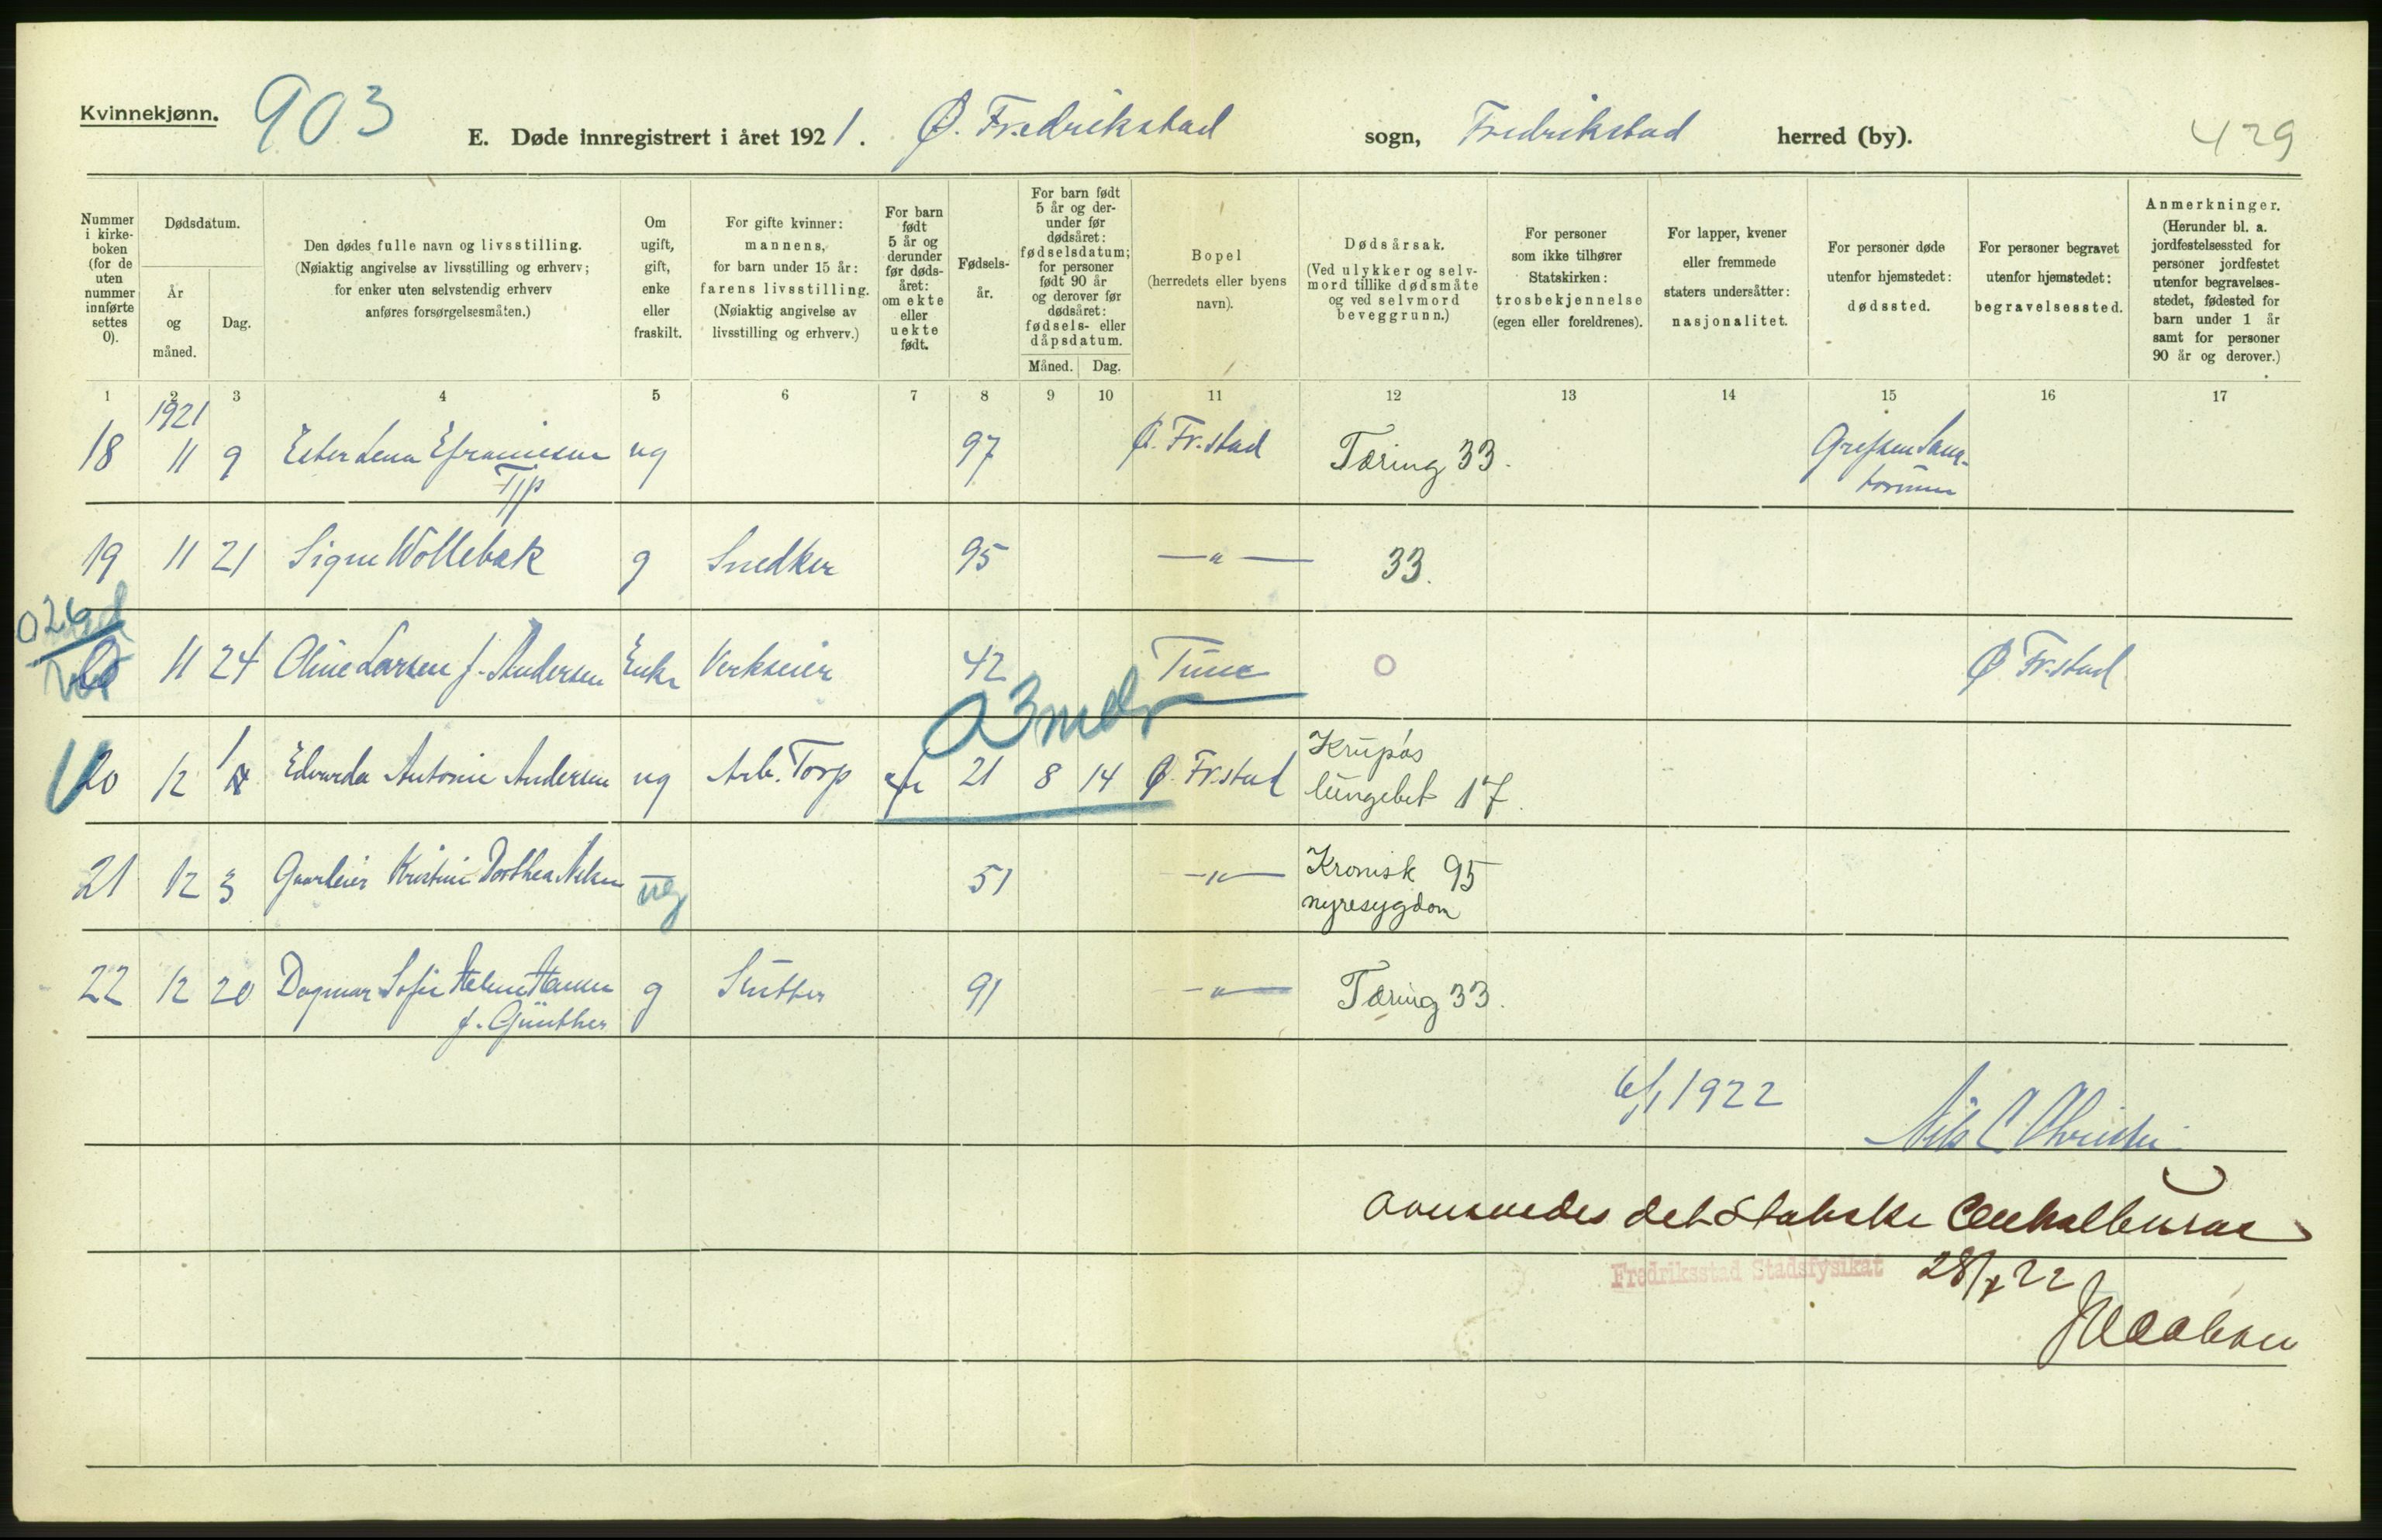 Kvinnekjønn.
903
E. Døde innregistrert i året 1921. Ø. Fredrikstad sogn, Fredrikstad herred (by).
429
Nummer i kirke-boken (for de uten nummer innførte settes 0).
Dødsdatum.
År og måned.
Dag.
Den dødes fulle navn og livsstilling. (Nøiaktig angivelse av livsstilling og erhverv; for enker uten selvstendig erhverv anføres forsørgelsesmåten.)
Om ugift, gift, enke eller fraskilt.
For gifte kvinner: mannens, for barn under 15 år: farens livsstilling. (Nøiaktig angivelse av livsstilling og erhverv.)
For barn født 5 år og derunder før døds-året: om ekte eller uekte født.
Fødsels-år.
For barn født 5 år og der-under før dødsåret: fødselsdatum; for personer født 90 år og derover før dødsåret: fødsels- eller dåpsdatum.
Måned. Dag.
Bopel (herredets eller byens navn).
Dødsårsak. (Ved ulykker og selv-mord tillike dødsmåte og ved selvmord beveggrunn.)
For personer som ikke tilhører Statskirken: trosbekjennelse (egen eller foreldrenes).
For lapper, kvener eller fremmede staters undersåtter: nasjonalitet.
For personer døde utenfor hjemstedet: dødssted.
For personer begravet utenfor hjemstedet: begravelsessted.
Anmerkninger. (Herunder bl. a. jordfestelsessted for personer jordfestet utenfor begravelses-stedet, fødested for barn under 1 år samt for personer 90 år og derover.)
1 2 3 4 5 6 7 8 9 10 11 12 13 14 15 16 17
1921
18 11 9 Ester Lena Efraimsen ug 97 Ø. Fr.stad Tæring 33. Grefsen Sana-
torium
19 11 21 Signe Wollebæk g Snedker 95 —"— 33.
026
0 11 24 Oline Larsen f. Andersen Enke Verkseier 42 Tune 0 Ø Fr.stad
3 mdr
20 12 1 Edvarda Antonie Andersen ug Arb. Torp 21 8 14 Ø. Fr.stad Krupøs
lungebet 17.
21 12 3 Kristine Dorthea ug 51 —"— Kronisk 95
nyresygdom
22 12 20 Dagmar Sofie Helene Hansen g 91 —"— Tæring 33.
f. Günther
6/1 1922
Nils C Christie
det Statistiske Centralbureau
Fredriksstad Stadsfysikat 22